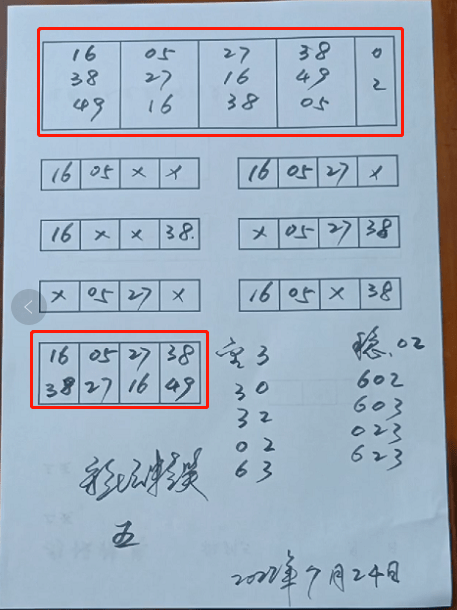 16 05 27 38 0
38 27 16 49 2
49 16 38 05
16 05 × × 16 05 27 ×
16 × × 38. × 05 27 38
× 05 27 × 16 05 × 38
16 05 27 38
38 27 16 49
3 稳.02
30 602
32 603
02 023
63 623
五
2022年9月24日